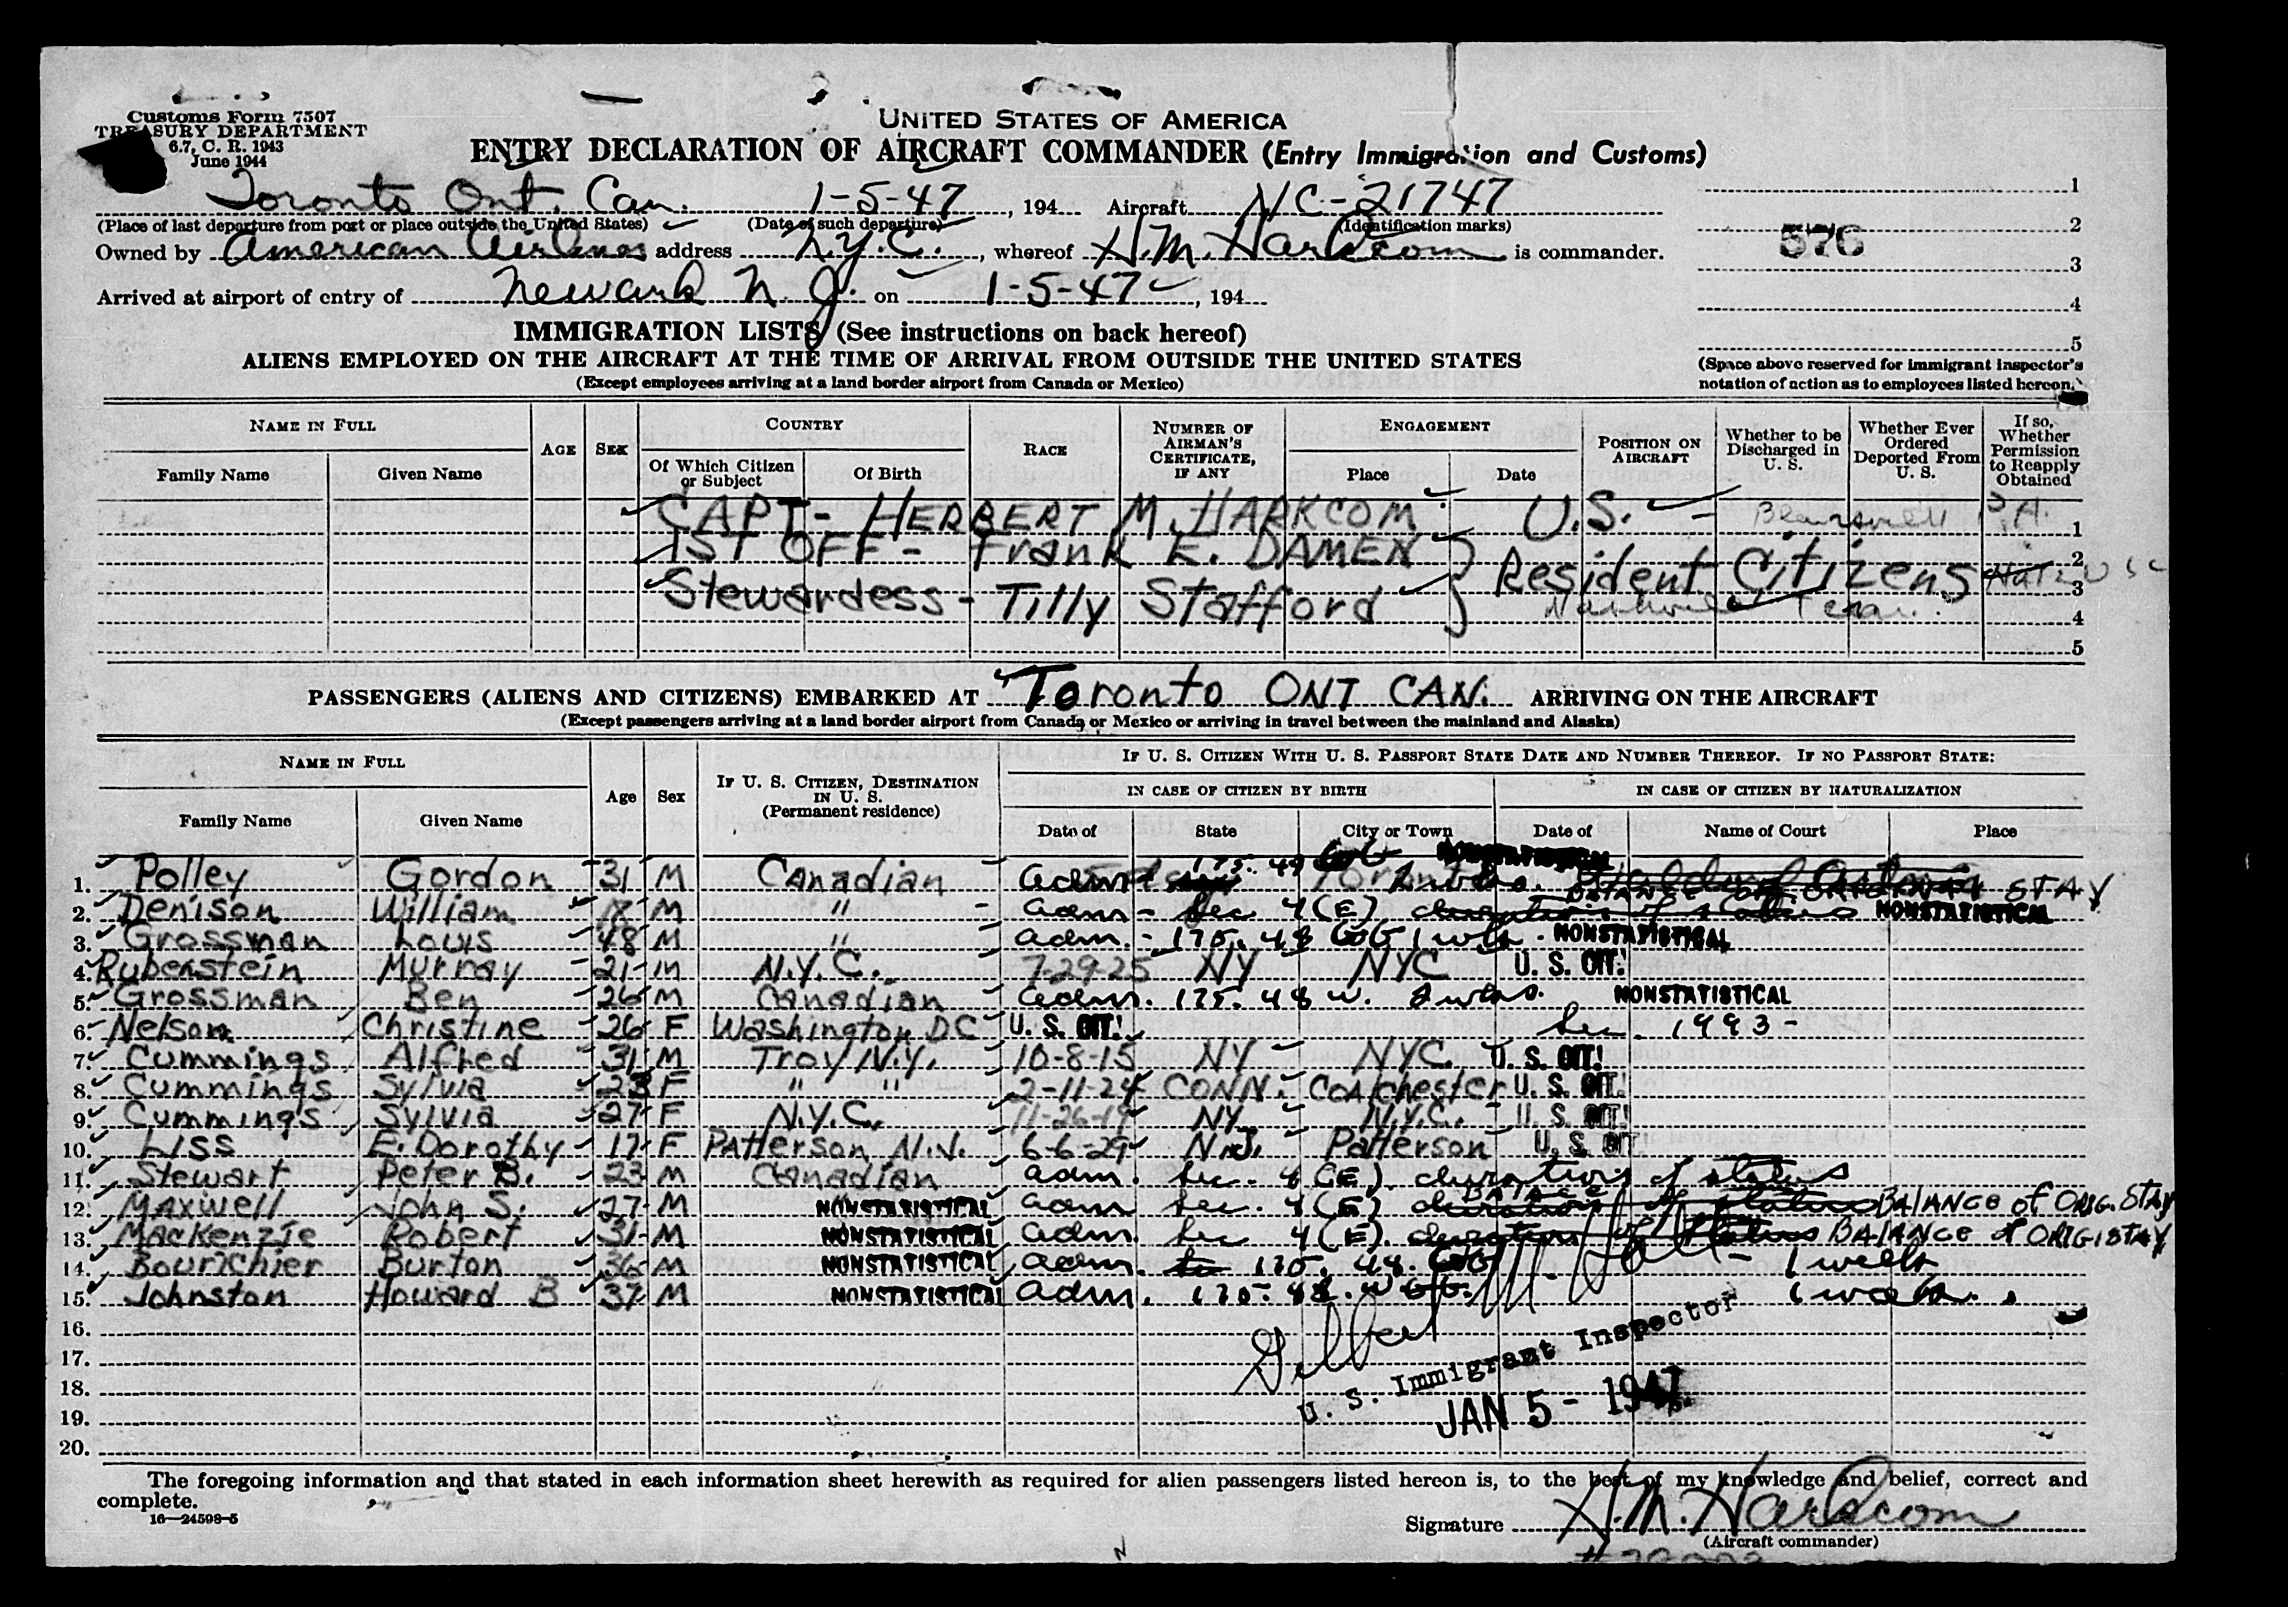 Customs Form 7507
TREASURY DEPARTMENT
6.7, C. R. 1943
June 1944
UNITED STATES OF AMERICA
ENTRY DECLARATION OF AIRCRAFT COMMANDER (Entry Immigration and Customs)
Toronto Ont. Can. 1-5-47, 194 Aircraft NC-21747
(Place of last departure from port or place outside the United States) (Date of such departure) (Identification marks)
Owned by American Airlines address N.Y.C., whereof H.M. Harkcom is commander.
Arrived at airport of entry of Newark N.J. on 1-5-47, 194
1
2
576
3
4
5
(Space above reserved for immigrant inspector's
notation of action as to employees listed hereon.)
IMMIGRATION LISTS (See instructions on back hereof)
ALIENS EMPLOYED ON THE AIRCRAFT AT THE TIME OF ARRIVAL FROM OUTSIDE THE UNITED STATES
(Except employees arriving at a land border airport from Canada or Mexico)
NAME IN FULL AGE SEX COUNTRY RACE NUMBER OF AIRMAN'S CERTIFICATE, IF ANY ENGAGEMENT POSITION ON AIRCRAFT Whether to be Discharged in U. S. Whether Ever Ordered Deported From U. S. If so, Whether Permission to Reapply Obtained
Family Name Given Name Of Which Citizen or Subject Of Birth Place Date
CAPT- HERBERT M. HARKCOM U.S. - PA. 1
1ST OFF- Frank E. DAMEN 2
Resident Citizens 3
Stewardess - Tilly Stafford Tenn. 4
5
PASSENGERS (ALIENS AND CITIZENS) EMBARKED AT Toronto ONT CAN. ARRIVING ON THE AIRCRAFT
(Except passengers arriving at a land border airport from Canada or Mexico or arriving in travel between the mainland and Alaska)
NAME IN FULL Age Sex IF U. S. CITIZEN, DESTINATION IN U. S. (Permanent residence) IF U. S. CITIZEN WITH U. S. PASSPORT STATE DATE AND NUMBER THEREOF. IF NO PASSPORT STATE:
IN CASE OF CITIZEN BY BIRTH IN CASE OF CITIZEN BY NATURALIZATION
Family Name Given Name Date of State City or Town Date of Name of Court Place
1. Polley Gordon 31 M Canadian adm 175.
2. Denison William 18 M " adm - Sec 4(E) BALANCE OF ORIGINAL STAY NONSTATISTICAL
3. Grossman Louis 48 M " adm. - 175. 48 1 wk. NONSTATISTICAL
4. Rubenstein Murray 21 M N.Y.C. 7-29-25 NY NYC U. S. CIT!
5. Grossman Ben 26 M Canadian adm. 175. 48 w. 2 wks. NONSTATISTICAL
6. Nelson Christine 26 F Washington DC U. S. CIT! Sec. 1993-
7. Cummings Alfred 31 M Troy N.Y. 10-8-15 NY NYC. U. S. CIT!
8. Cummings Sylvia 23 F " " 2-11-24 CONN. Colchester U. S. CIT!
9. Cummings Sylvia 27 F N.Y.C. 11-26-19 NY N.Y.C. U. S. CIT!
10. Liss E. Dorothy 17 F Patterson N.J. 6-6-29 N.J. Patterson U. S. CIT
11. Stewart Peter B. 23 M Canadian adm. Sec. 4(E) duration of status
12. Maxwell John S. 27 M NONSTATISTICAL adm Sec. 4(E) duration of status BALANCE of ORIG. STAY
13. Mackenzie Robert 31 M NONSTATISTICAL adm. Sec 4(E). duration of status BALANCE of ORIG. STAY
14. Bourchier Burton 36 M NONSTATISTICAL adm. 175. 48. - 1 week
15. Johnston Howard B 37 M NONSTATISTICAL adm. 175. 48. 1 week.
16.
17.
18.
19.
20.
U. S. Immigrant Inspector
JAN 5 - 1947
The foregoing information and that stated in each information sheet herewith as required for alien passengers listed hereon is, to the best of my knowledge and belief, correct and
complete.
16—24598-5
Signature H.M. Harkcom
(Aircraft commander)